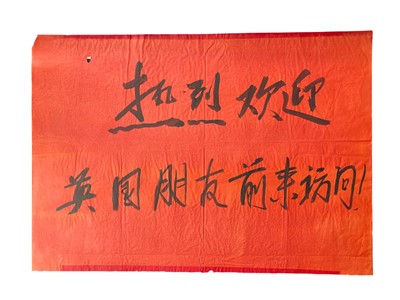 热烈欢迎
英国朋友前来访问!